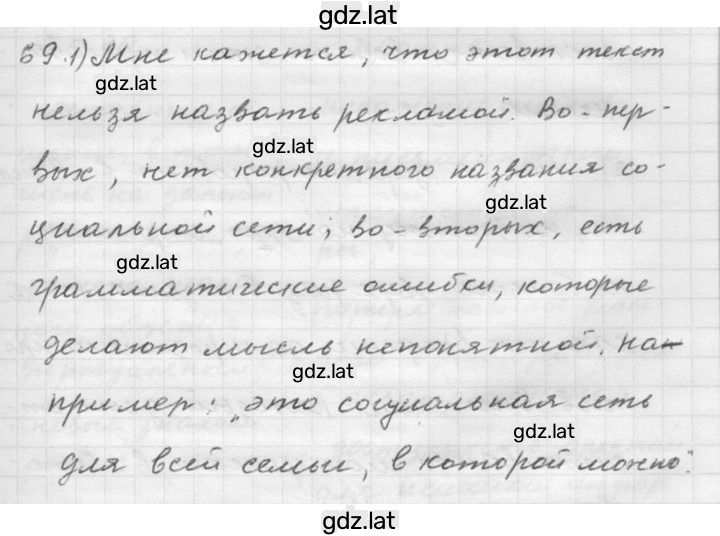 gdz.lat
69.1) Мне кажется, что этот текст
gdz.lat
нельзя назвать рекламой. Во-пер-
gdz.lat
вых, нет конкретного названия со-
gdz.lat
циальной сети; во-вторых, есть
gdz.lat
грамматические ошибки, которые
делают мысль непонятной. На-
gdz.lat
пример: „это социальная сеть
gdz.lat
для всей семьи, в которой можно".
gdz.lat